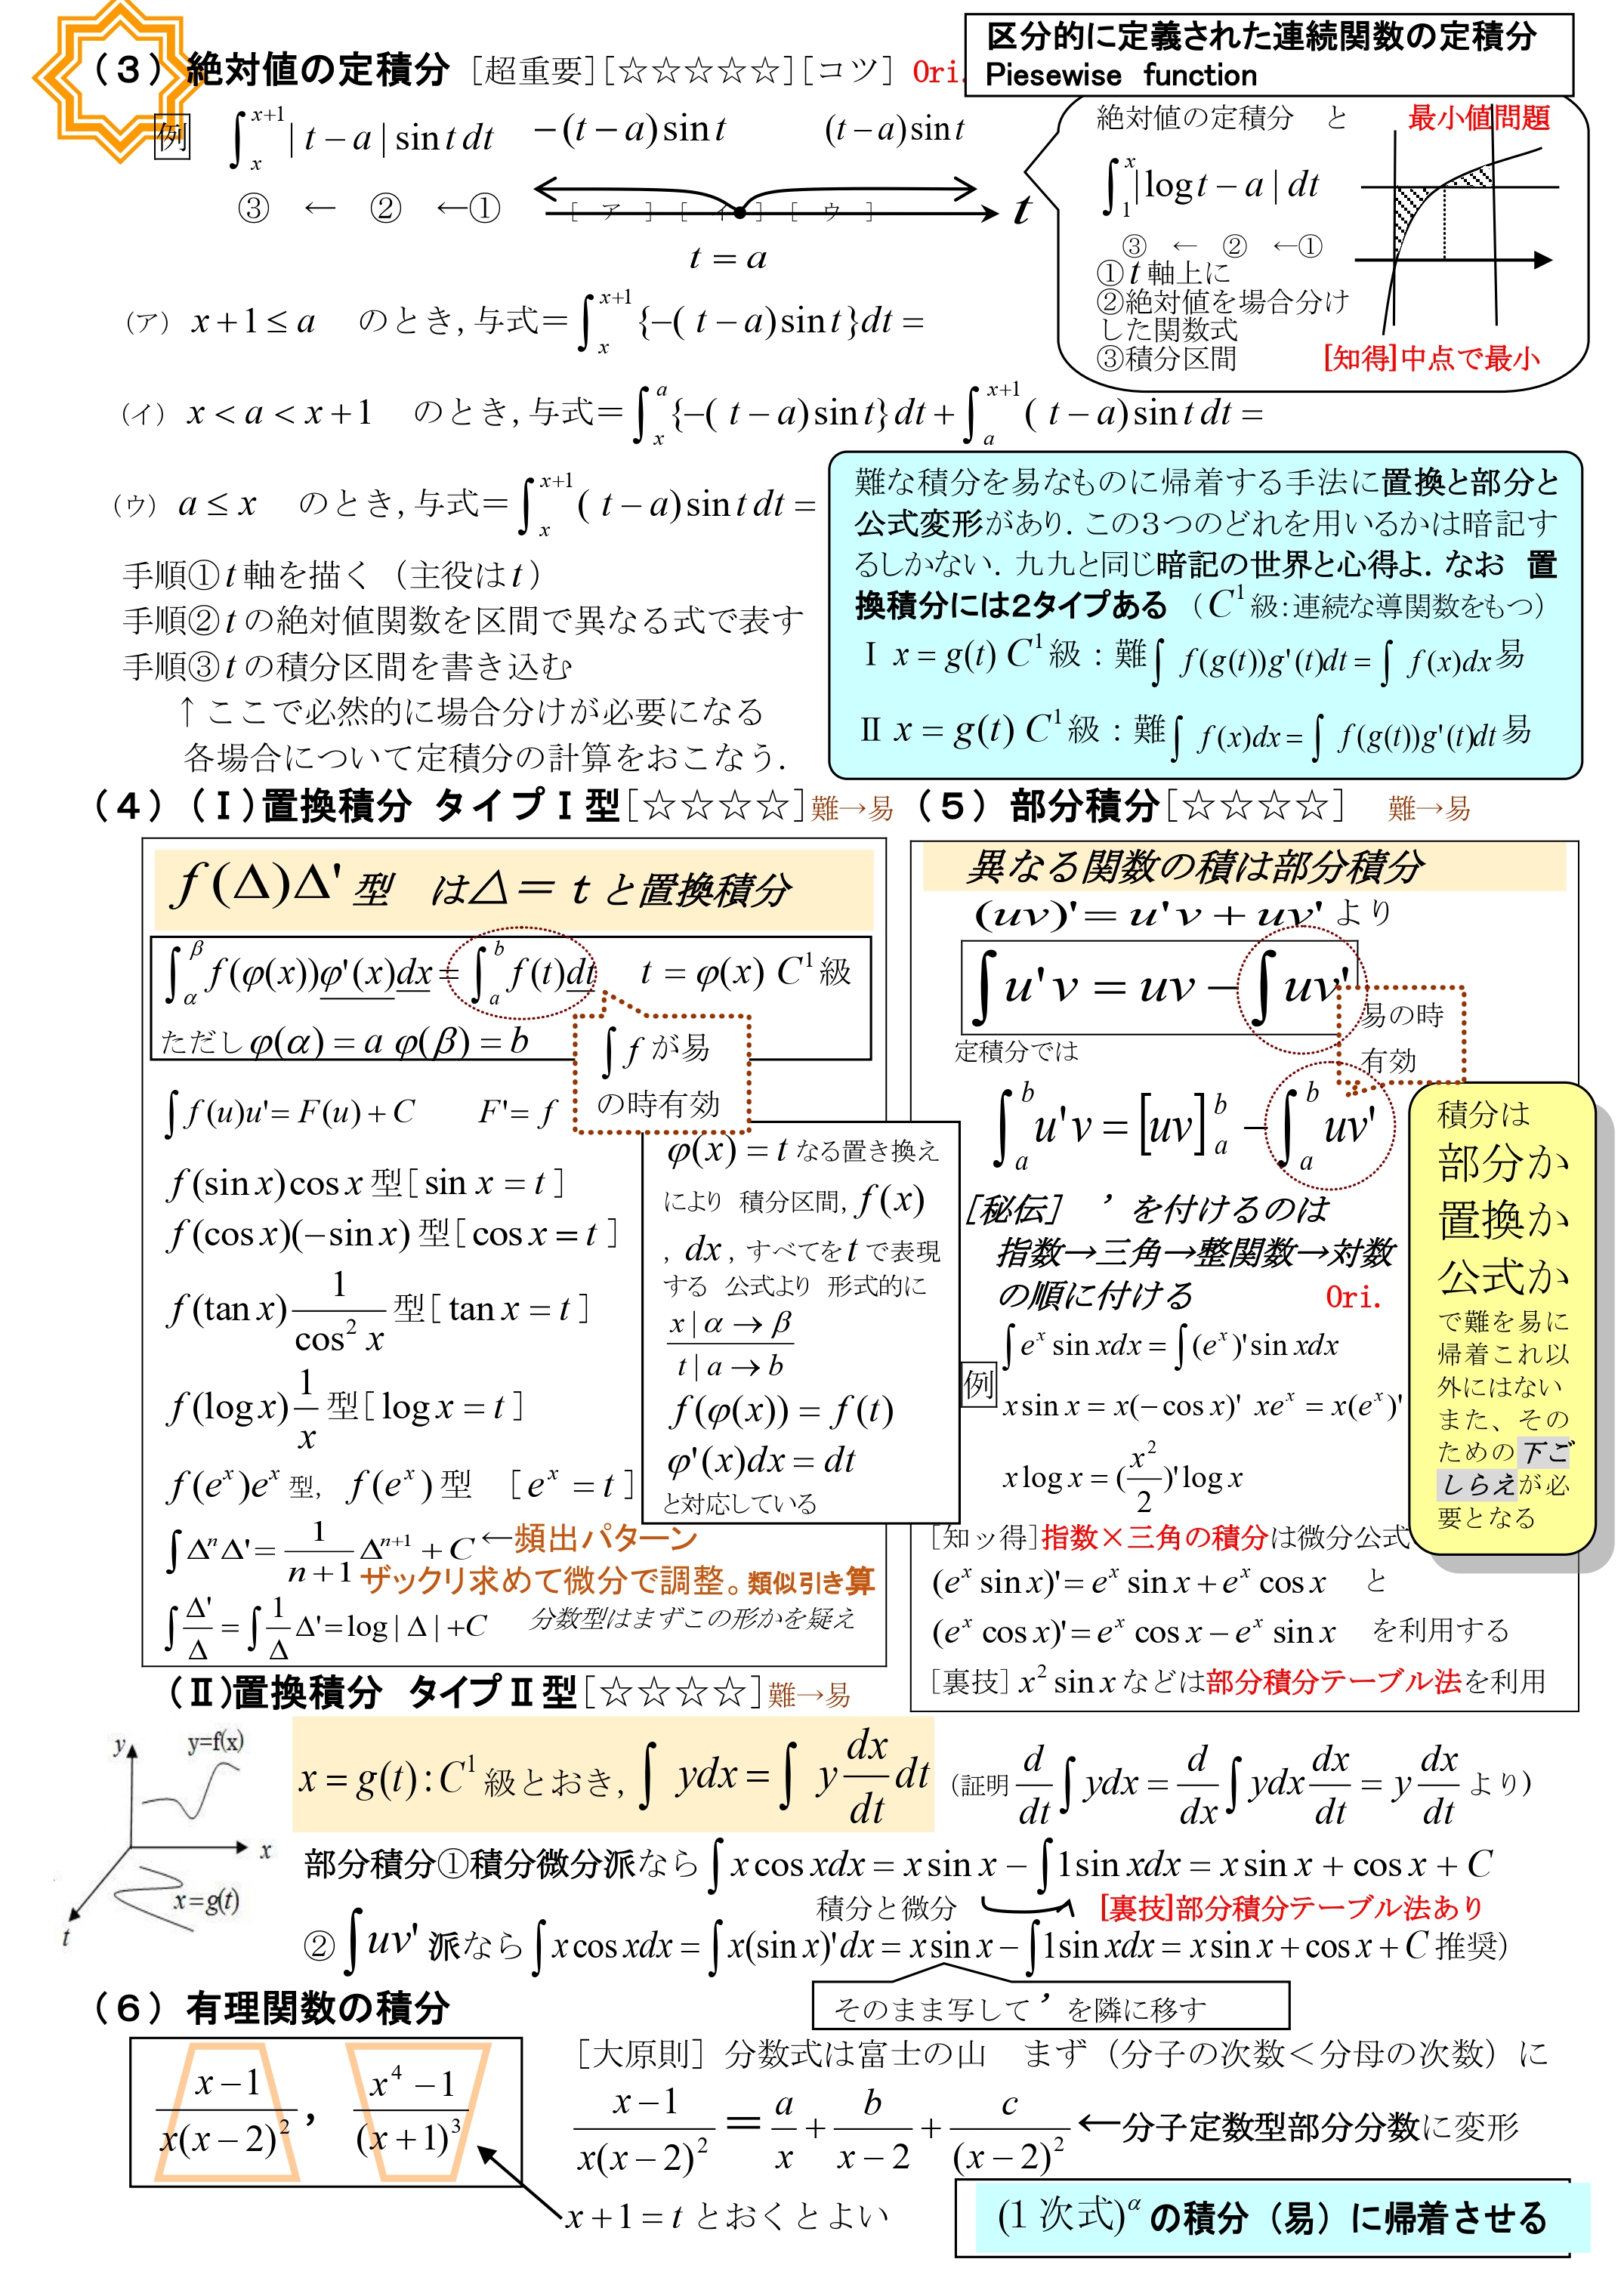 （３）絶対値の定積分 ［超重要］［☆☆☆☆☆］［コツ］ Ori.
区分的に定義された連続関数の定積分
Piesewise function
例 ∫_x^{x+1} | t − a | sin t dt −(t − a) sin t (t − a) sin t
③ ← ② ←①
［ ア ］［ イ ］［ ウ ］ t
t = a
絶対値の定積分 と 最小値問題
∫_1^x |log t − a | dt
③ ← ② ←①
①t 軸上に
②絶対値を場合分け
した関数式
③積分区間 [知得]中点で最小
（ア） x + 1 ≤ a のとき, 与式＝∫_x^{x+1} {−( t − a) sin t}dt =
（イ） x < a < x + 1 のとき, 与式＝∫_x^a {−( t − a) sin t} dt + ∫_a^{x+1} ( t − a) sin t dt =
（ウ） a ≤ x のとき, 与式＝∫_x^{x+1} ( t − a) sin t dt =
手順①t 軸を描く（主役は t ）
手順②t の絶対値関数を区間で異なる式で表す
手順③t の積分区間を書き込む
↑ここで必然的に場合分けが必要になる
各場合について定積分の計算をおこなう.
難な積分を易なものに帰着する手法に置換と部分と
公式変形があり. この３つのどれを用いるかは暗記す
るしかない. 九九と同じ暗記の世界と心得よ. なお 置
換積分には２タイプある （C¹級:連続な導関数をもつ）
Ⅰ x = g(t) C¹級：難∫ f(g(t))g'(t)dt = ∫ f(x)dx易
Ⅱ x = g(t) C¹級：難∫ f(x)dx = ∫ f(g(t))g'(t)dt易
（４）（Ⅰ）置換積分 タイプⅠ型［☆☆☆☆］難→易
f(Δ)Δ' 型 は△＝ t と置換積分
∫_α^β f(φ(x))φ'(x)dx = ∫_a^b f(t)dt t = φ(x) C¹級
ただし φ(α) = a φ(β) = b
∫ f が易
の時有効
∫ f(u)u' = F(u) + C F' = f
f(sin x)cos x 型［ sin x = t ］
f(cos x)(−sin x) 型［ cos x = t ］
f(tan x) 1/cos² x 型［ tan x = t ］
f(log x) 1/x 型［ log x = t ］
f(eˣ)eˣ 型, f(eˣ) 型 ［ eˣ = t ］
∫Δⁿ Δ' = 1/(n+1) Δⁿ⁺¹ + C ←頻出パターン
ザックリ求めて微分で調整。類似引き算
∫ Δ'/Δ = ∫ 1/Δ Δ' = log | Δ | +C 分数型はまずこの形かを疑え
φ(x) = t なる置き換え
により 積分区間, f(x)
, dx , すべてを t で表現
する 公式より 形式的に
x | α → β
t | a → b
f(φ(x)) = f(t)
φ'(x)dx = dt
と対応している
（５）部分積分［☆☆☆☆］ 難→易
異なる関数の積は部分積分
(uv)' = u'v + uv' より
∫ u'v = uv − ∫ uv'
易の時
有効
定積分では
∫_a^b u'v = [uv]_a^b − ∫_a^b uv'
［秘伝］ ’ を付けるのは
指数→三角→整関数→対数
の順に付ける Ori.
例 ∫ eˣ sin xdx = ∫ (eˣ)' sin xdx
x sin x = x(− cos x)' xeˣ = x(eˣ)'
x log x = (x²/2)' log x
［知ッ得］指数×三角の積分は微分公式
(eˣ sin x)' = eˣ sin x + eˣ cos x と
(eˣ cos x)' = eˣ cos x − eˣ sin x を利用する
［裏技］x² sin x などは部分積分テーブル法を利用
積分は
部分か
置換か
公式か
で難を易に
帰着これ以
外にはない
また、その
ための下ご
しらえが必
要となる
（Ⅱ）置換積分 タイプⅡ型［☆☆☆☆］難→易
y y=f(x)
x
x=g(t)
t
x = g(t) : C¹ 級とおき, ∫ ydx = ∫ y dx/dt dt （証明 d/dt ∫ ydx = d/dx ∫ ydx dx/dt = y dx/dt より）
部分積分①積分微分派なら ∫ x cos xdx = x sin x − ∫ 1sin xdx = x sin x + cos x + C
積分と微分 [裏技]部分積分テーブル法あり
② ∫ uv' 派なら ∫ x cos xdx = ∫ x(sin x)' dx = x sin x − ∫ 1sin xdx = x sin x + cos x + C 推奨）
そのまま写して ’ を隣に移す
（６）有理関数の積分
(x − 1)/(x(x − 2)²) , (x⁴ − 1)/((x + 1)³)
［大原則］分数式は富士の山 まず（分子の次数＜分母の次数）に
(x − 1)/(x(x − 2)²) ＝ a/x + b/(x − 2) + c/((x − 2)²) ←分子定数型部分分数に変形
x + 1 = t とおくとよい
(1 次式)^α の積分（易）に帰着させる